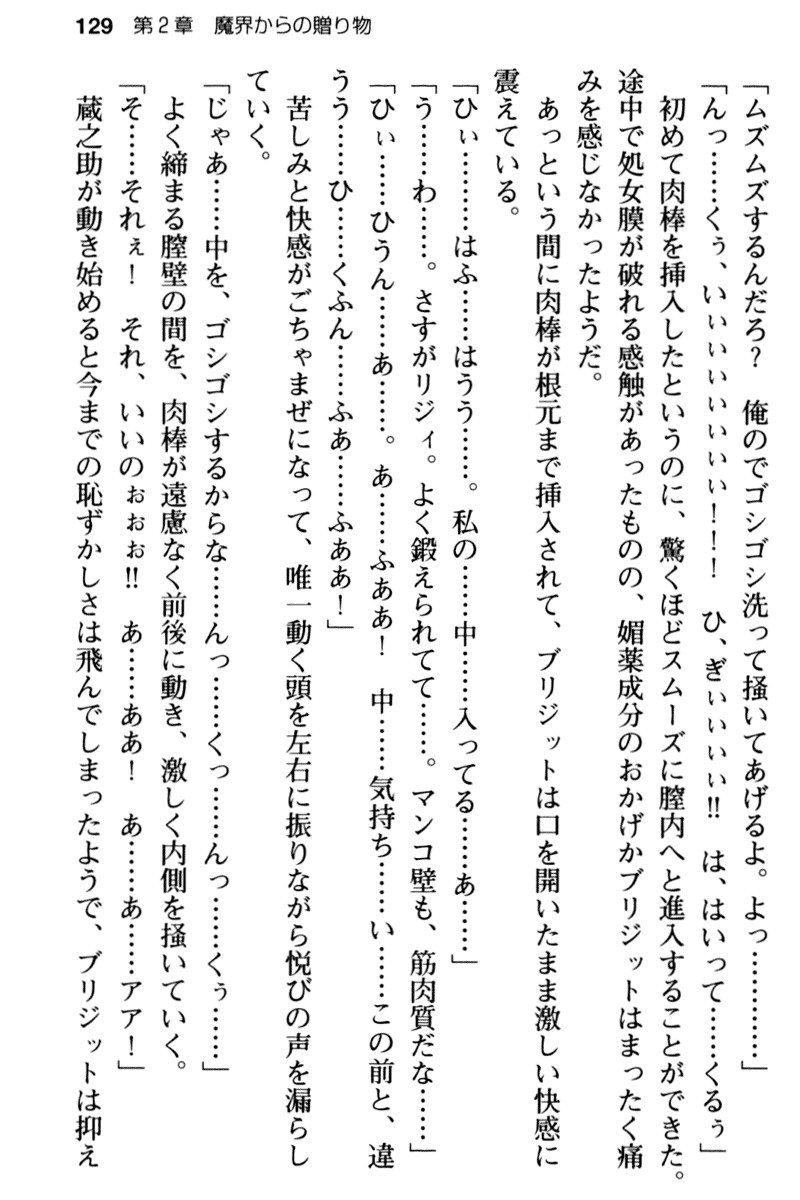 129 第2章 魔界からの贈り物
「ムズムズするんだろ？ 俺のでゴシゴシ洗って掻いてあげるよ。よっ…………」
「んっ……くぅ、いぃぃぃぃぃぃぃ！！！ ひ、ぎぃぃぃぃ!! は、はいって……くるぅ」
初めて肉棒を挿入したというのに、驚くほどスムーズに膣内へと進入することができた。
途中で処女膜が破れる感触があったものの、媚薬成分のおかげかブリジットはまったく痛
みを感じなかったようだ。
あっという間に肉棒が根元まで挿入されて、ブリジットは口を開いたまま激しい快感に
震えている。
「ひぃ………はふ……はうう……。私の……中……入ってる……あ……」
「う……わ……。さすがリジィ。よく鍛えられてて……。マンコ壁も、筋肉質だな……」
「ひぃ……ひうん……あ……。あ……ふああ！ 中……気持ち……い……この前と、違
うう……ひ……くふん……ふあ……ふああ！」
苦しみと快感がごちゃまぜになって、唯一動く頭を左右に振りながら悦びの声を漏らし
ていく。
「じゃあ……中を、ゴシゴシするからな……んっ……くっ……んっ……くぅ……」
よく締まる膣壁の間を、肉棒が遠慮なく前後に動き、激しく内側を掻いていく。
「そ……それぇ！ それ、いいのぉぉぉ!! あ……ああ！ あ……あ……アア！」
蔵之助が動き始めると今までの恥ずかしさは飛んでしまったようで、ブリジットは抑え